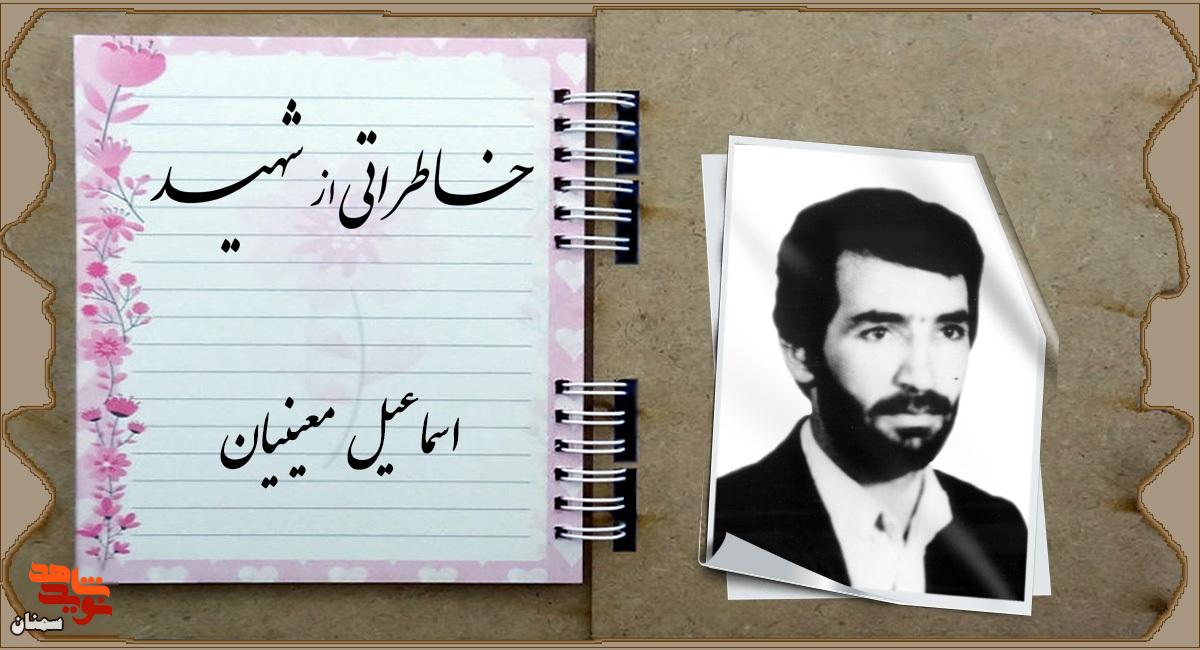 خاطراتی از شهید
اسماعیل معینیان
نوید شاهد
سمنان